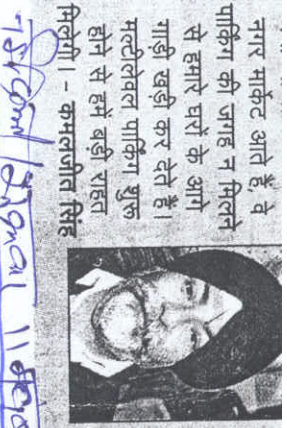 नगर मार्केट आते हैं, वे
पार्किंग की जगह न मिलने
से हमारे घरों के आगे
गाड़ी खड़ी कर देते हैं।
मल्टीलेवल पार्किंग शुरू
होने से हमें बड़ी राहत
मिलेगी। - कमलजीत सिंह